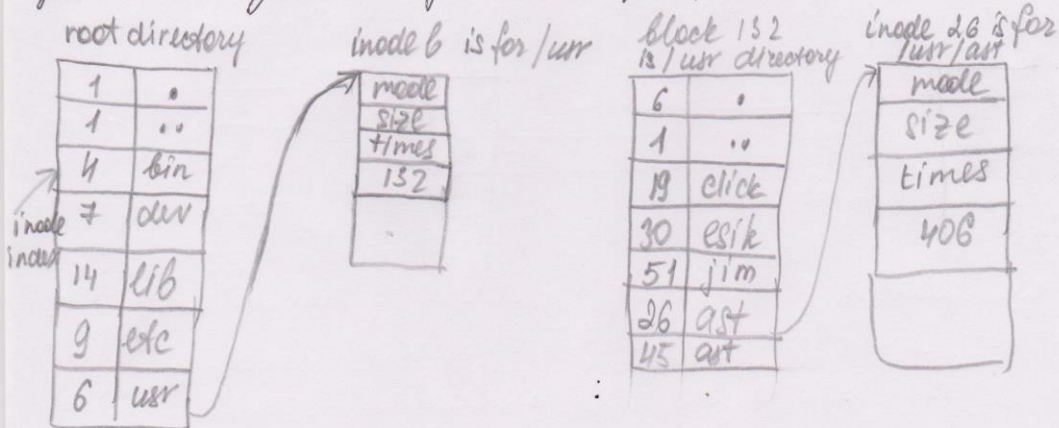 root directory
1 .
1 ..
4 bin
7 dev
14 lib
9 etc
6 usr
inode
index
inode 6 is for /usr
mode
size
times
132
block 132
is /usr directory
6 .
1 ..
19 click
30 esik
51 jim
26 ast
45 ast
inode 26 is for
/usr/ast
mode
size
times
406